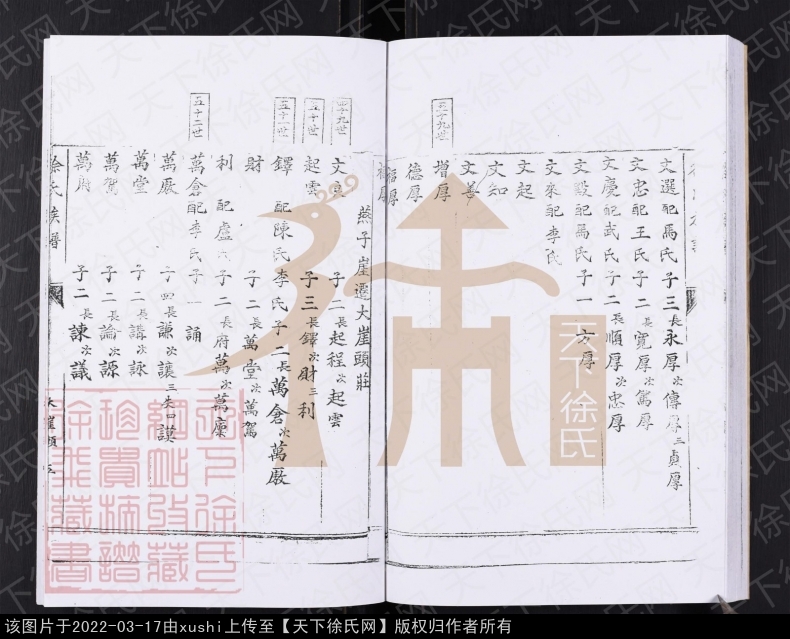 文選 配馬氏 子三 長永厚 次傳厚 三貞厚
文忠 配王氏 子二 長寬厚 次篤厚
文慶 配武氏 子二 長順厚 次忠厚
文設 配馬氏 子一 方厚
文來 配李氏
文起
文知
文善
三十九世
增厚
德厚
燕子崖遷大崖頭莊
四十九世
子二 長起程 次起雲
五十世
起雲 子三 長鐸 次財 三利
五十一世
鐸 配陳氏李氏 子二 長萬倉 次萬廒
財 子二 萬堂 次萬駕
利 配盧氏 子二 長萬府 次萬廩
五十二世
萬倉 配李氏 子一 誦
萬廒 子四 長謙 次讓 三失 四謨
萬堂 子二 長講 次詠
萬駕 子二 長論 次諒
萬府 子二 長諫 次議
徐氏族譜
大崖頭
天下徐氏
天下徐氏网
该图片于2022-03-17由xushi上传至【天下徐氏网】版权归作者所有